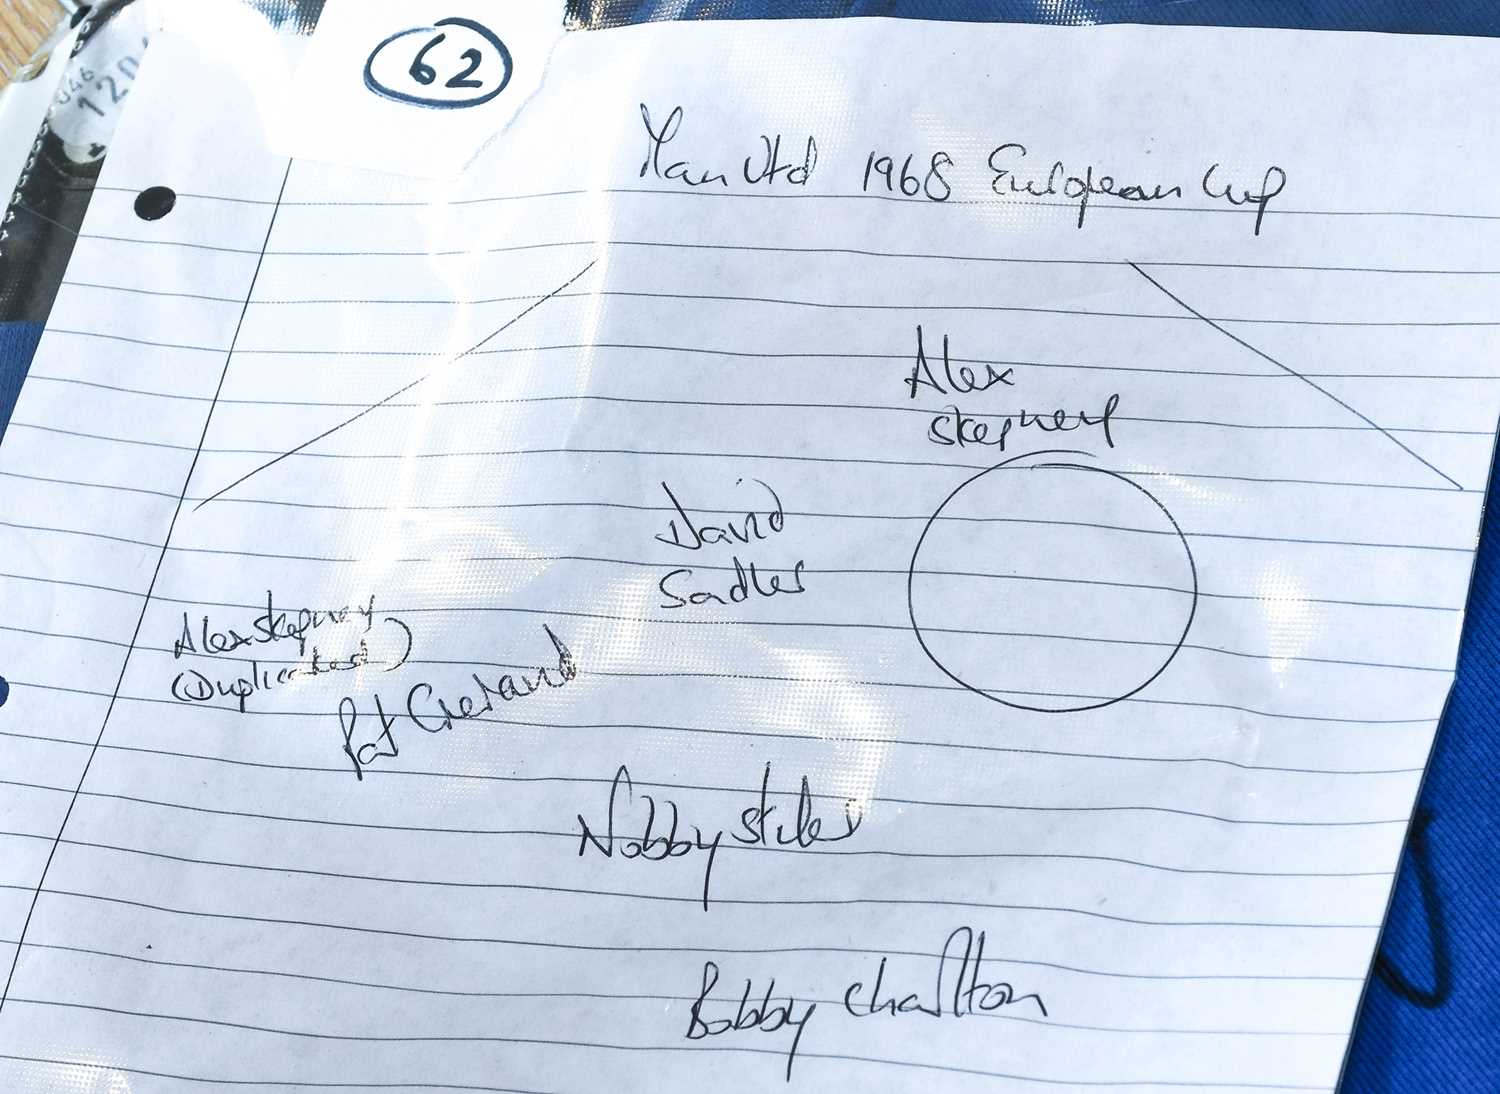 62
Man Utd 1968 European Cup
Alex
Stepney
David
Sadler
Alex Stepney
(Duplicated)
Pat Crerand
Nobby Stiles
Bobby Charlton